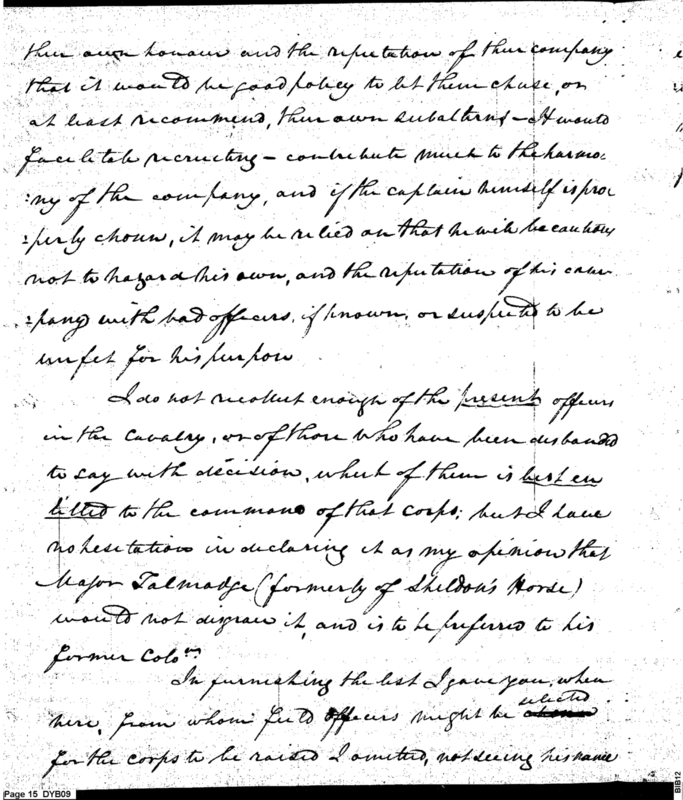 their own honour and the reputation of their company
that it would be good policy to let them chuse, or
at least recommend, their own subalterns – It would
facilitate recruiting – contribute much to the harmo:
:ny of the company, and if the captain himself is pro:
:perly chosen, it may be relied on that he will be cautious
not to hazard his own, and the reputation of his com:
:pany with bad officers, if known, or suspected to be
unfit for his purpose
I do not recollect enough of the present officers
in the Cavalry, or of those who have been disbanded
to say with decision, which of them is best en
titled to the command of that corps; but I have
no hesitation in declaring it as my opinion that
Major Talmadge (formerly of Sheldon's Horse)
would not disgrace it, and is to be preferred to his
former Colo.
In furnishing the list I gave you, when
selected
here, from whom field officers might be
for the corps to be raised I omitted, not seeing his name
Page 15 DYB09
BIB12